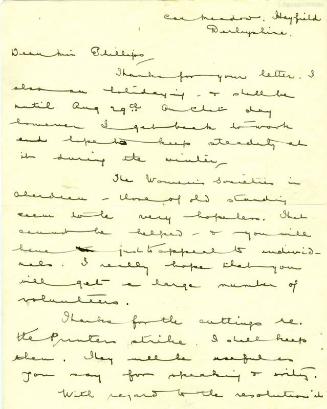 Carr Meadow, Hayfield
Derbyshire.
Dear Miss Phillips
Thanks for your letter. I
also am holidaying - & shall be
until Aug 29th. On that day
however I get back to work
and hope to keep steadily at
it during the winter.
The Women's Societies in
Aberdeen - those of old standing
seem to be very hopeless. That
cannot be helped - & you will
have just to appeal to individ-
uals. I really hope that you
will get a large number of
volunteers.
Thanks for the cuttings re.
the Printers strike. I shall keep
them. They will be useful as
you say for speaking & writing.
With regard to the resolution